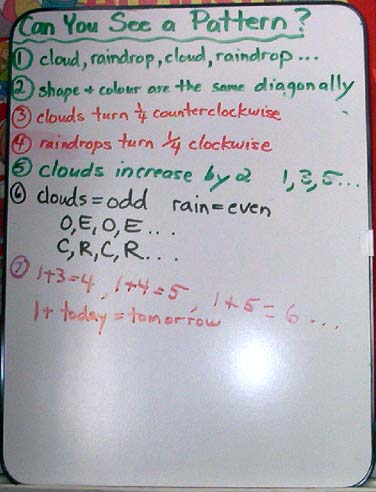 Can You See a Pattern?
① cloud, raindrop, cloud, raindrop...
② shape + colour are the same diagonally
③ clouds turn ¼ counterclockwise
④ raindrops turn ¼ clockwise
⑤ clouds increase by 2 1, 3, 5...
⑥ clouds = odd rain = even
O, E, O, E...
C, R, C, R...
⑦ 1+3=4, 1+4=5, 1+5=6...
1+ today = tomorrow